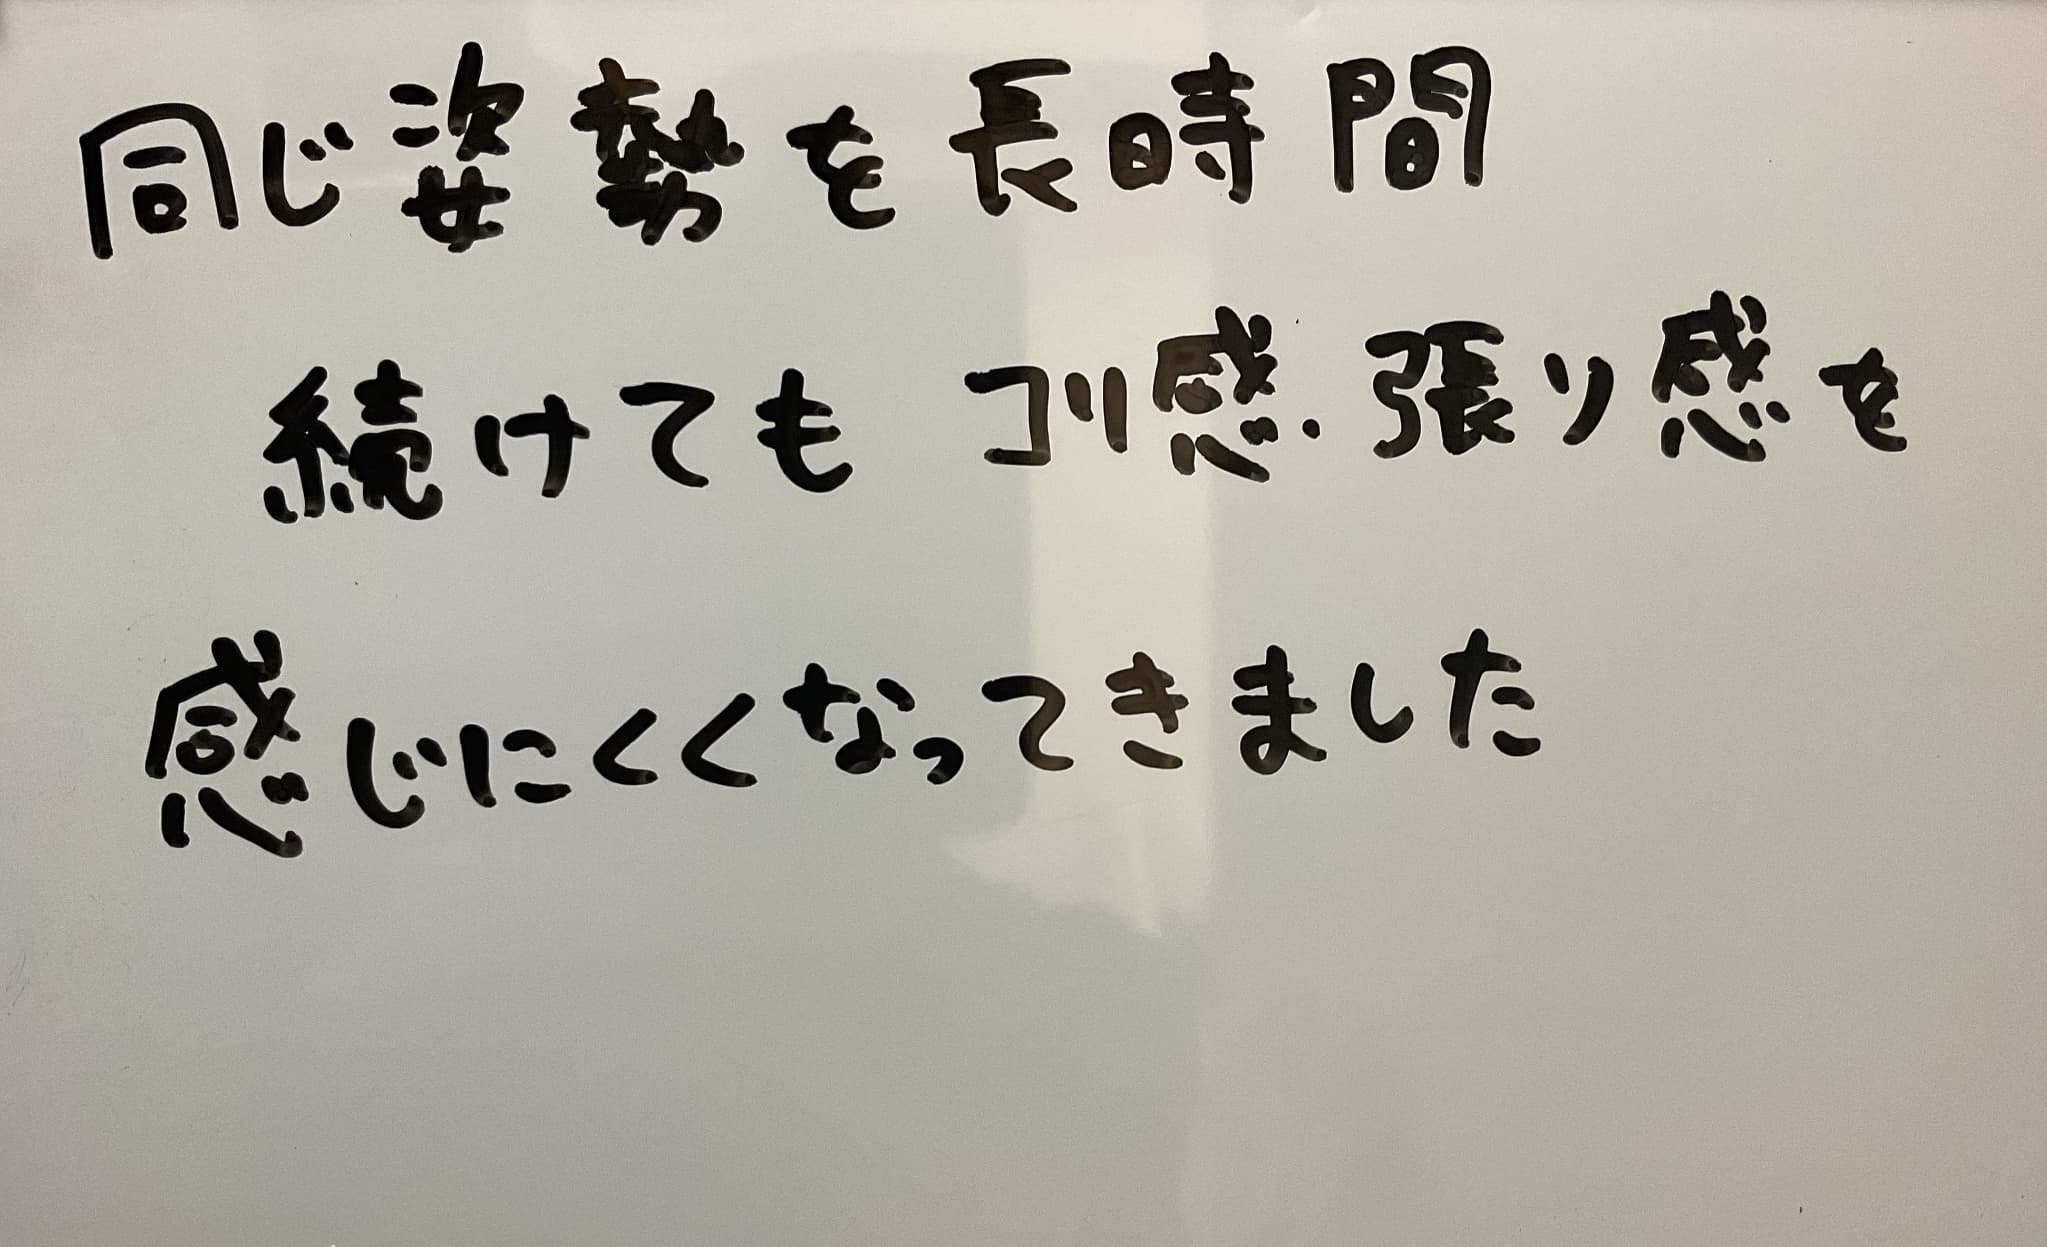 同じ姿勢を長時間
続けてもコリ感・張り感を
感じにくくなってきました